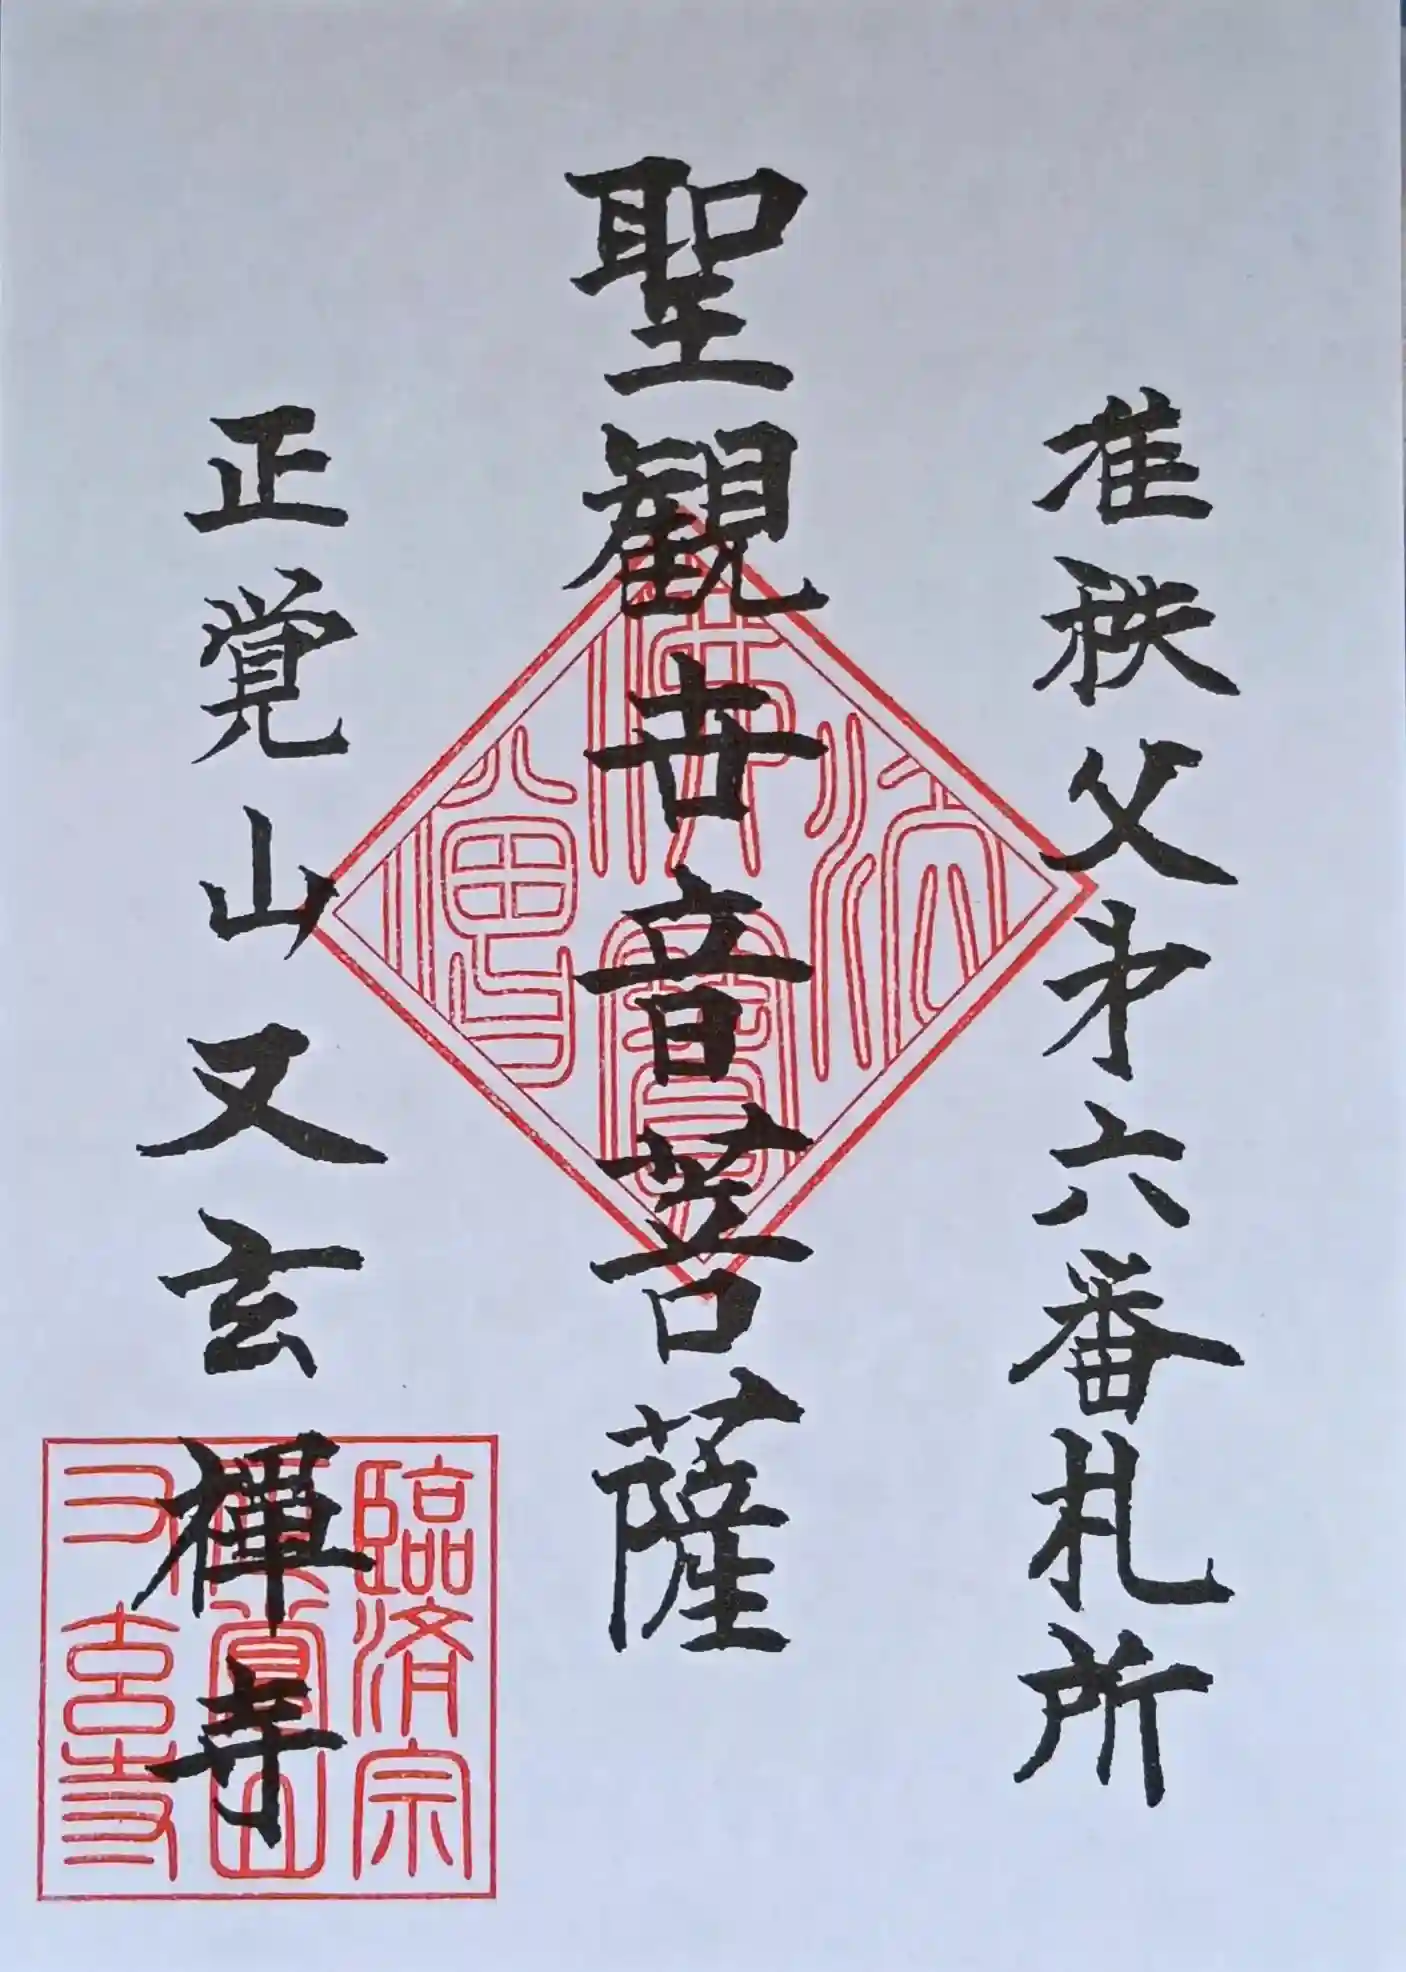 准秩父㐧六番札所
聖観世音菩薩
正覚山又玄禅寺
佛法僧寶
臨済宗
正覚山
又玄寺